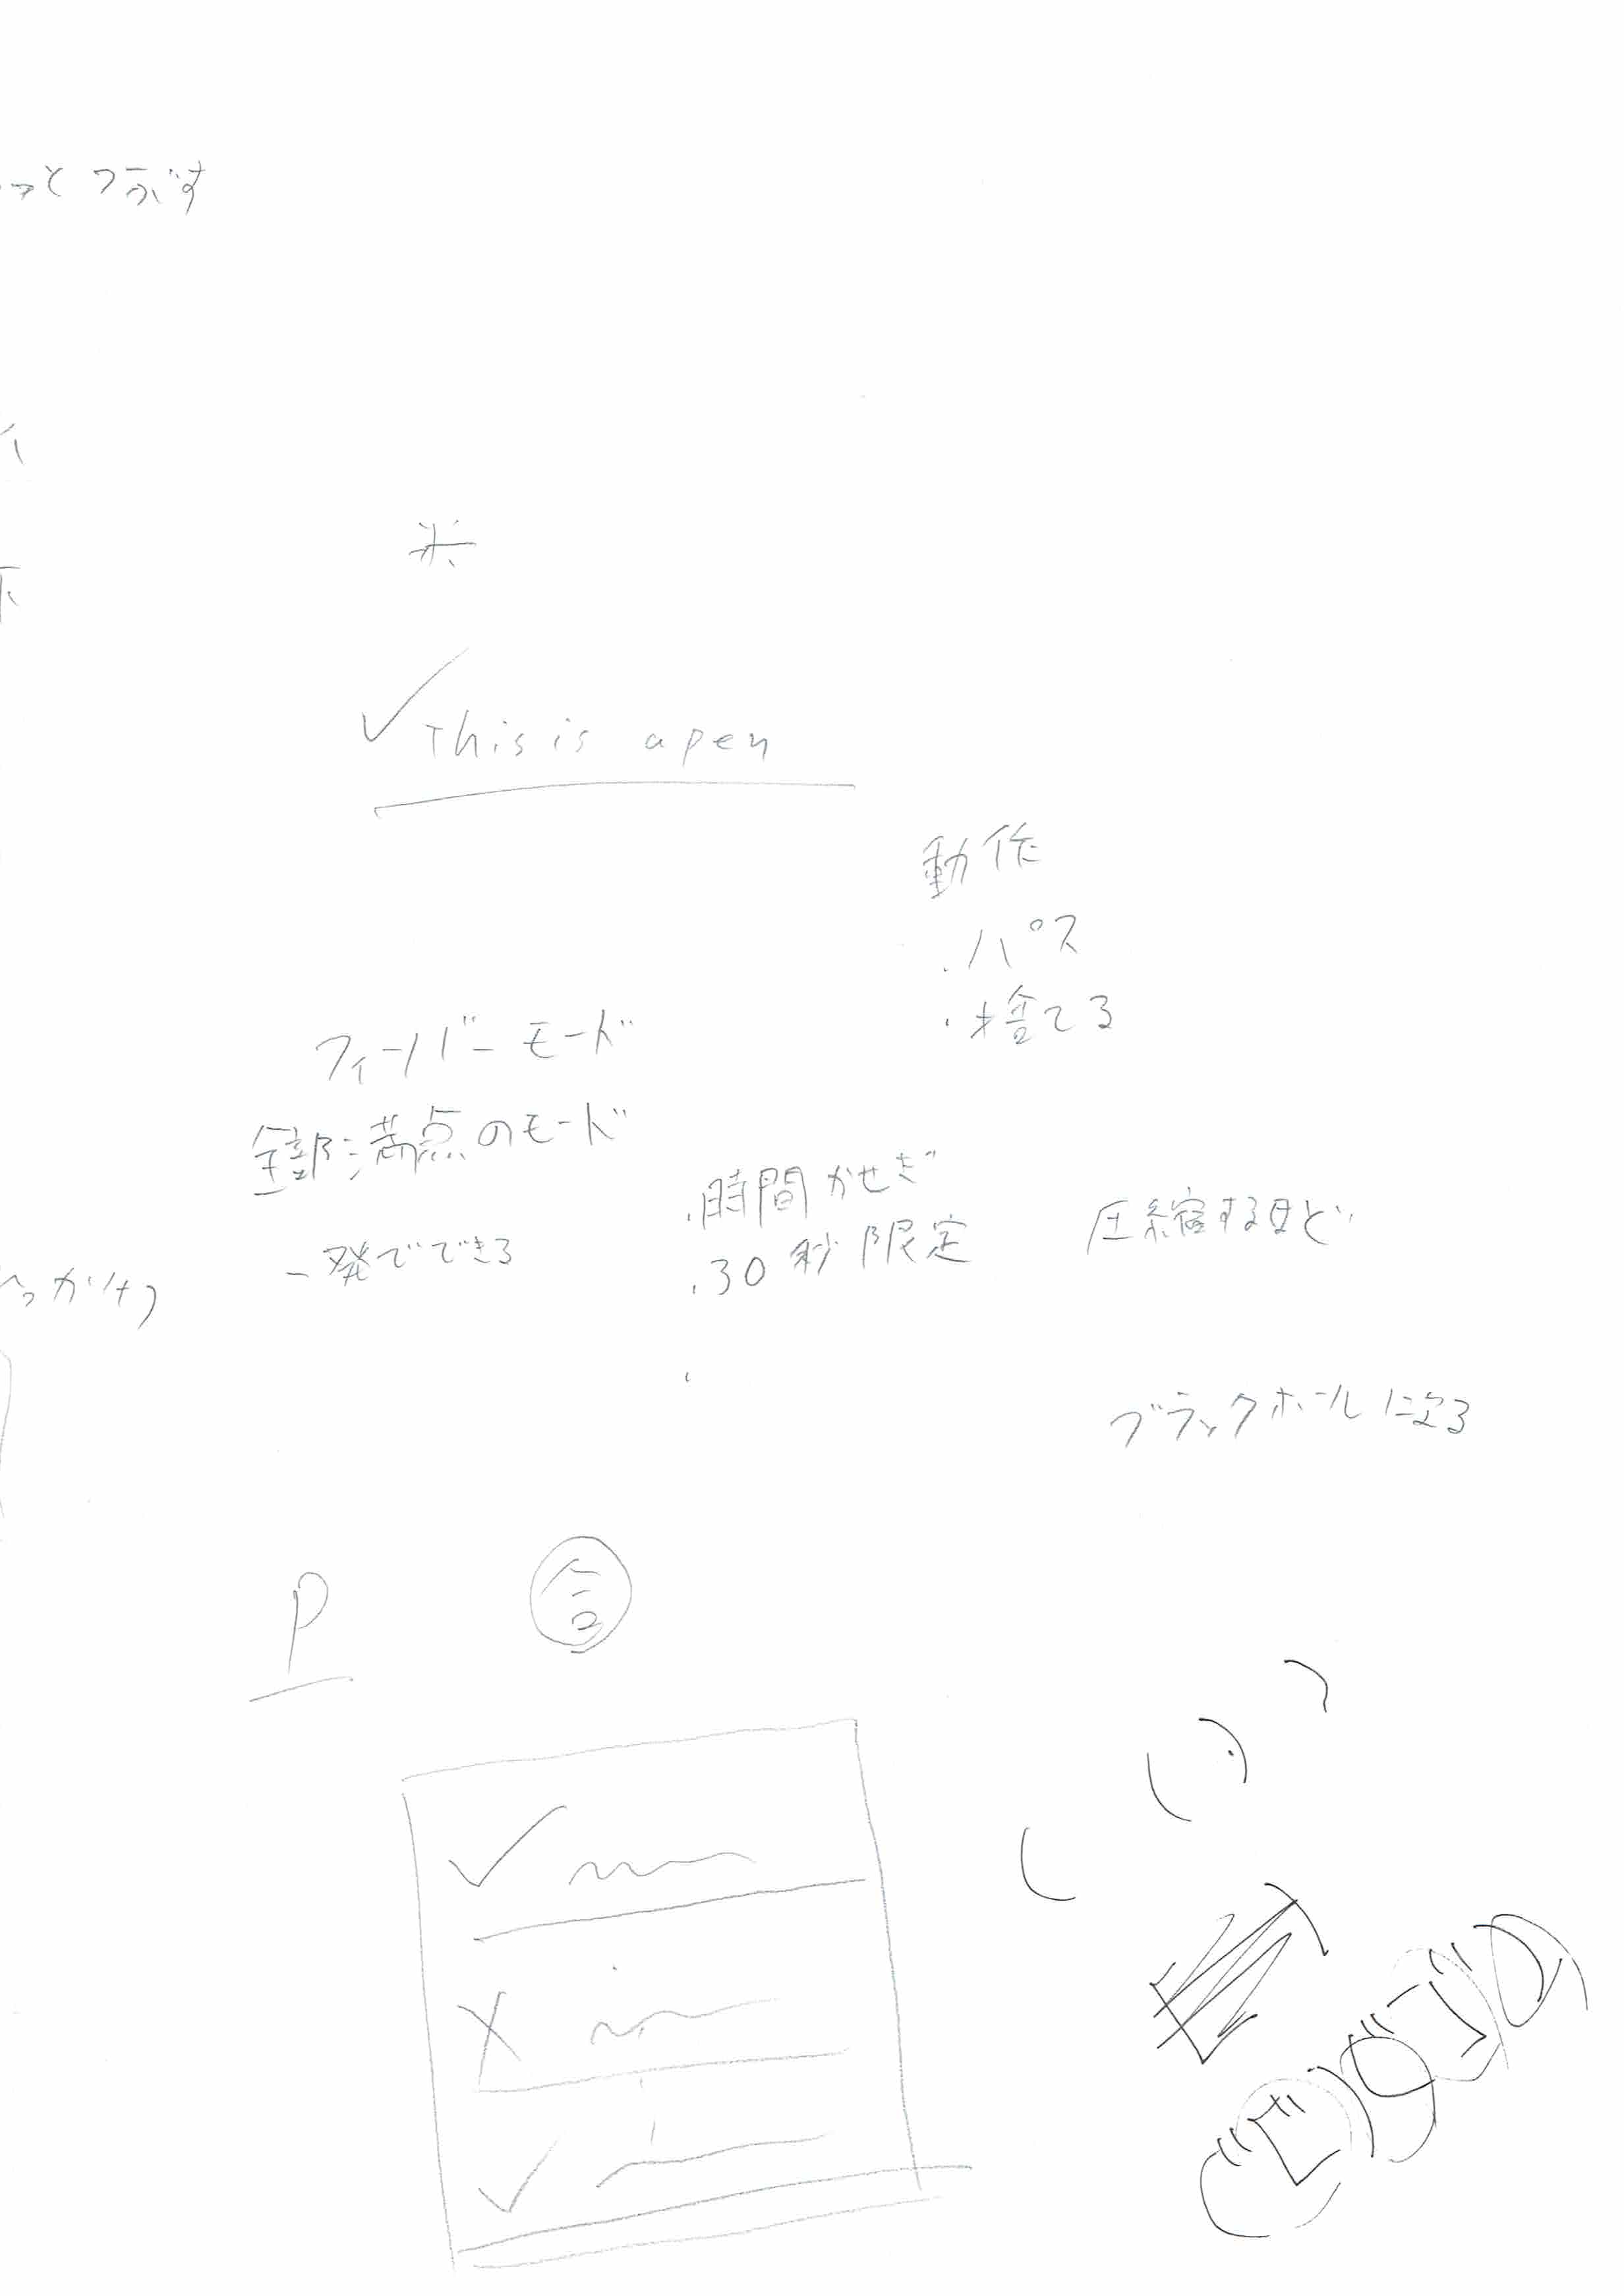 っと つぶす
米
This is a pen
動作
・パス
・捨てる
フィーバーモード
全部満点のモード
一発でできる
・時間かせぎ
・30秒限定
圧縮するほど
ブラックホールになる
P
合